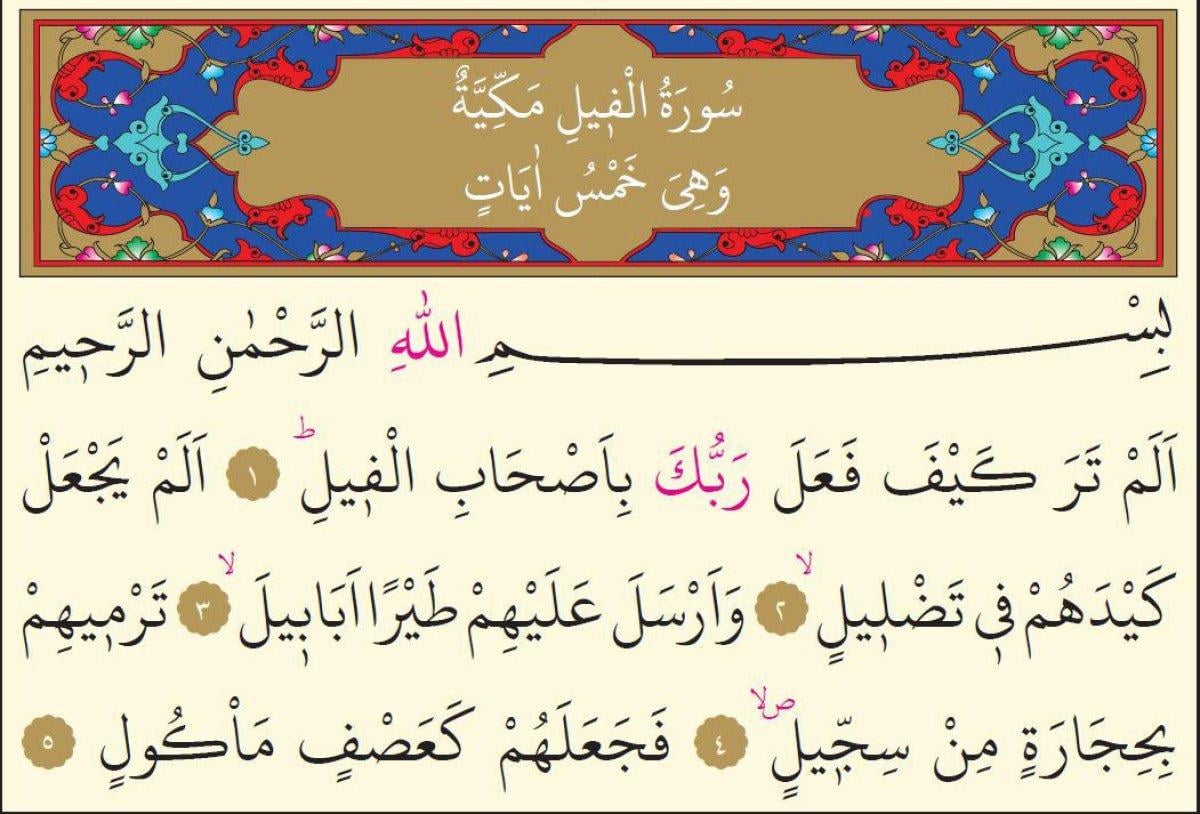 سُورَةُ الْف۪يلِ مَكِّيَّةٌ
وَهِىَ خَمْسُ اٰيَاتٍ
بِسْــــــــــــــــــــمِ اللّٰهِ الرَّحْمٰنِ الرَّح۪يمِ
اَلَمْ تَرَ كَيْفَ فَعَلَ رَبُّكَ بِاَصْحَابِ الْف۪يلِۜ ﴿١﴾ اَلَمْ يَجْعَلْ
كَيْدَهُمْ ف۪ى تَضْل۪يلٍۙ ﴿٢﴾ وَاَرْسَلَ عَلَيْهِمْ طَيْرًا اَبَاب۪يلَۙ ﴿٣﴾ تَرْم۪يهِمْ
بِحِجَارَةٍ مِنْ سِجّ۪يلٍۖۙ ﴿٤﴾ فَجَعَلَهُمْ كَعَصْفٍ مَاْكُولٍ ﴿٥﴾